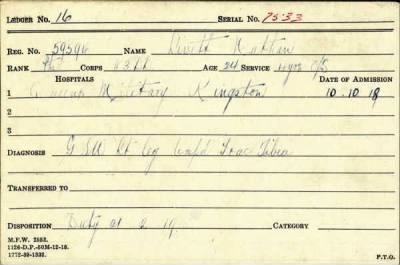 LEDGER No. 16 SERIAL No. 7533
REG. No. 59596 NAME Nathan
RANK Pte CORPS AGE 24 SERVICE
HOSPITALS DATE OF ADMISSION
1 Queens Military Kingston 10.10.18
2
3
DIAGNOSIS G S W Rt leg Frac Tibia
TRANSFERRED TO
DISPOSITION Duty CATEGORY
M.F.W. 2553.
1126-D.P.-50M-12-18.
1772-39-1332.
P.T.O.